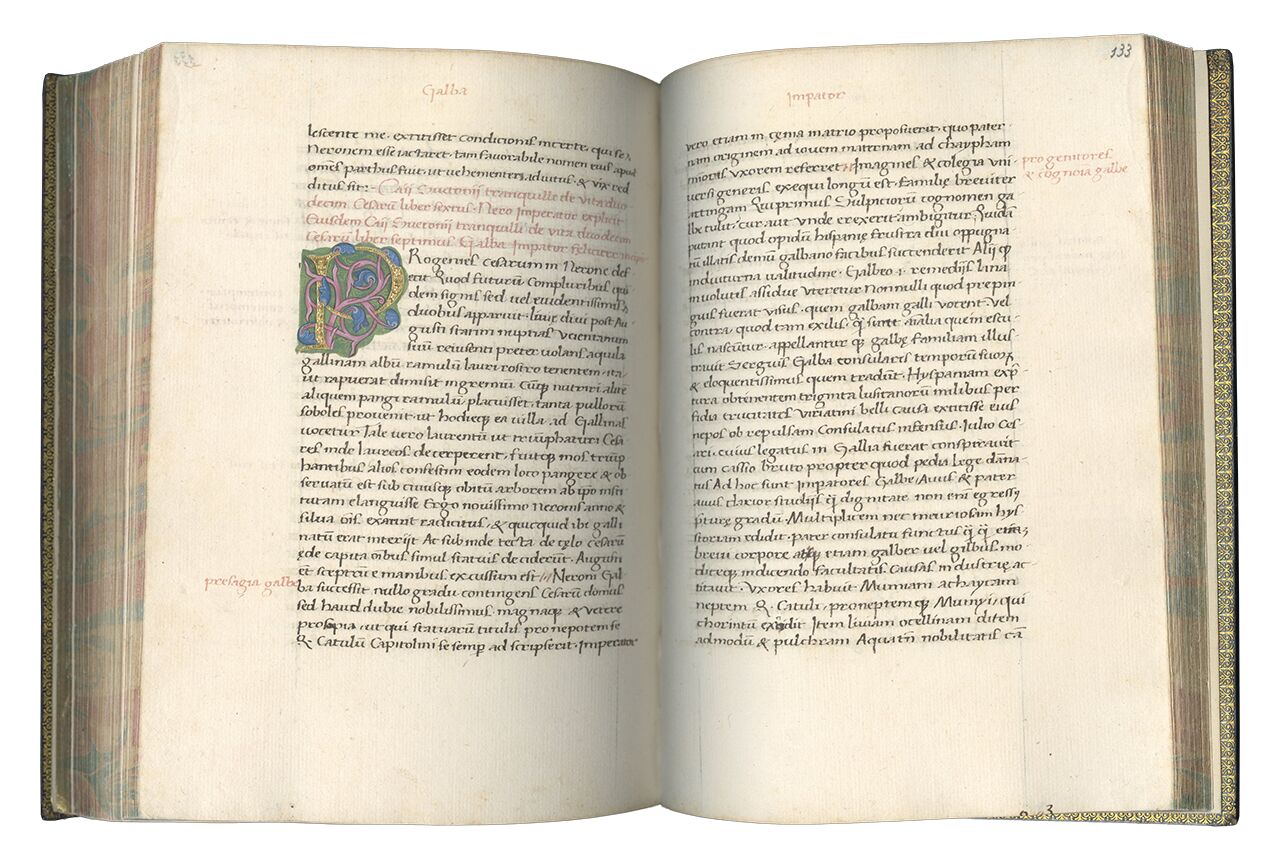 Galba
lescente me. extitisset condicionis incerte, qui se
Neronem esse iactaret. tam favorabile nomen eius apud
omnes parthos fuit. ut vehementer adiutus, & vix red
ditus sit:- Caii Suetonii tranquilli de vita duo
decim Cesarum liber sextus. Nero Imperator explicit
Eiusdem Caii Suetonii tranquilli de vita duodecim
Cesarũ liber septimus Galba Impator feliciter incipit
PRogenies cesarum in Nerone def
ecit Quod futurũ Compluribus quidem
dem signis sed vel evidentissimis
duobus apparuit. livie olim post Au
gusti statim nuptias Veientanum
suũ revisenti preter volans aquila
gallinam albũ ramulũ lauri rostro tenentem. ita
ut rapuerat dimisit in gremiũ Cũq nutriri alitẽ
aliquem pangi ramulũ placuisset. tanta pullorũ
soboles provenit. ut hodieq̨ ea villa ad Gallinas
vocetur Tale vero lauretũ ut triũphaturi Cesa
res inde laureas decerperent. fuitq̨ mos triũp
hantibus alias confestim eodem loco pangere & ob
servatũ est sub cuiusq̨ obitũ arborem ab ipso insti
tutam elanguisse Ergo novissimo Neronis anno &
silva oĩs exaruit radicitus, & quicquid ibi galli
natũ erat interiit Ac subinde tacta de cęlo Cesarũ
ęde capita oĩbus simul statuis deciderũt. Augusti
et sceptrũ e manibus excussum est // Neroni Gal
presagia galbe
ba successit nullo gradu contingens Cesarũ domus
sed haud dubie nobilissimus. magnaq̨ & vetere
prosapia. ut qui statuarũ titulis pronepotem se
Q. Catulũ Capitolini se semp adscripserit. Imperator
133
Impator
vero etiam in
matrio proposuerit, quo pater
nam originem ad iovem maternam ad
minois vxorem referret // Imagines & eulogia uni
progenitores
& cognoia galbe
versi generis exequi longũ est. Familię breviter
attingam Qui primus Sulpiciorũ cognomen ga
lbe tulit. cur aut vnde erexerit ambigitur. Quidã
putant quod opidũ hispanię frustra diu oppugna
tũ illatis demũ galbano facibus succenderit Alii q̨
in diuturna valitudine. Galbeo .i. remediis lana
involutis assidue vteretur Nonnulli quod prepin
guis fuerat visus. quem galbam galli vocent. Vel
contra, quod tam exilis. q̃ sunt aĩalia que in escu
lis nascũtur. appellantur q̨ galbę Familiam illus
travit Servius Galba consularis temporũ suorꝝ
& eloquentissimus quem tradũt. Hyspaniam exp̃
tura obtenentem triginta lusitanorũ milibus per
fidia trucitatis Viriatini belli causa extitisse eius
nepos ob repulsam Consulatus infensus. Iulio Ces
ari. cuius legatus in Gallia fuerat conspiravit
cum Cassio bruto propter quod pedia lege dãna
tus Ad hoc sunt Impatores Galbe. Avus & pater
avus clarior studiis q̃ dignitate non enĩ egressus
p̃ture gradũ. Multiplicem nec incuriosam hys
storiam edidit. pater consulatu functus q̃ q̃
brevi corpore atq̨ etiam galber vel gibbus mo
diceq̨ in dicendo facultatis Causas industrię ac
titavit. Vxores habuit. Mumiam achaycam
neptem Q. Catuli. proneptem q̨ Mumyi, qui
chorintũ excidit Item liviam ocellinam ditem
admodũ & pulchram A qua tñ nobilitatis cã